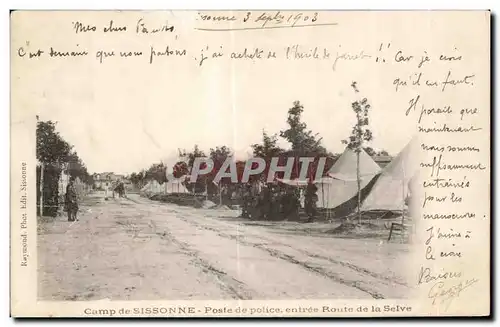 Mes chers Parents,
Sissonne 3 Septbre 1903
C'est demain que nous partons,
j'ai acheté de l'huile de jarret !! Car je crois
qu'il en faut.
Il paraît que
maintenant
nous sommes
suffisamment
entraînés
pour les
manœuvres.
J'irai à
le croire
Baisers
Georges
CPHARAMA
Raymond. Phot Edit. Sissonne
Camp de SISSONNE - Poste de police, entrée Route de la Selve